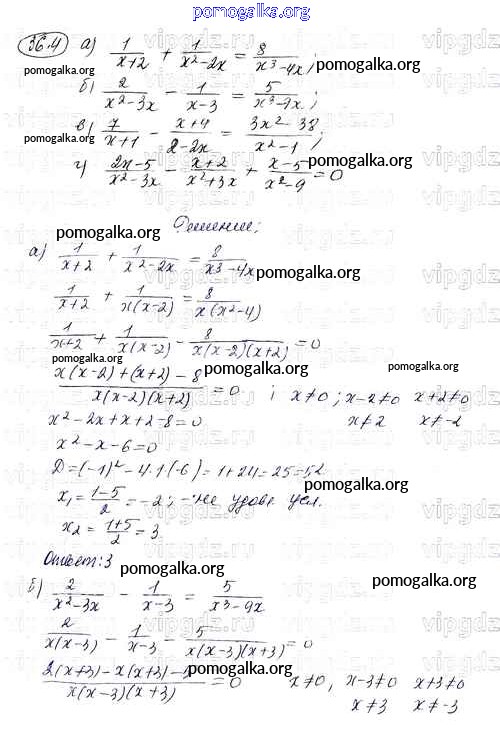 pomogalka.org
36.4 а) 1/(x+2) + 1/(x²-2x) = 8/(x³-4x);
pomogalka.org pomogalka.org
б) 2/(x²-3x) - 1/(x-3) = 5/(x³-9x);
pomogalka.org
в) 7/(x+1) - (x+4)/(2-2x) = (3x²-38)/(x²-1);
pomogalka.org
г) (2x-5)/(x²-3x) - (x+2)/(x²+3x) + (x-5)/(x²-9) = 0
Решение:
pomogalka.org
а) 1/(x+2) + 1/(x²-2x) = 8/(x³-4x)
pomogalka.org
1/(x+2) + 1/(x(x-2)) = 8/(x(x²-4))
1/(x+2) + 1/(x(x-2)) - 8/(x(x-2)(x+2)) = 0
pomogalka.org pomogalka.org
(x(x-2)+(x+2)-8)/(x(x-2)(x+2)) = 0 ; x≠0; x-2≠0 x+2≠0
x≠2 x≠-2
x²-2x+x+2-8=0
x²-x-6=0
D=(-1)²-4·1(-6)=1+24=25=5²
pomogalka.org
x₁=(1-5)/2=-2; -не удовл. усл.
x₂=(1+5)/2=3
Ответ: 3
pomogalka.org
б) 2/(x²-3x) - 1/(x-3) = 5/(x³-9x)
pomogalka.org
2/(x(x-3)) - 1/(x-3) - 5/(x(x-3)(x+3)) = 0
pomogalka.org
(2(x+3)-x(x+3)-)/(x(x-3)(x+3)) = 0 x≠0, x-3≠0 x+3≠0
x≠3 x≠-3